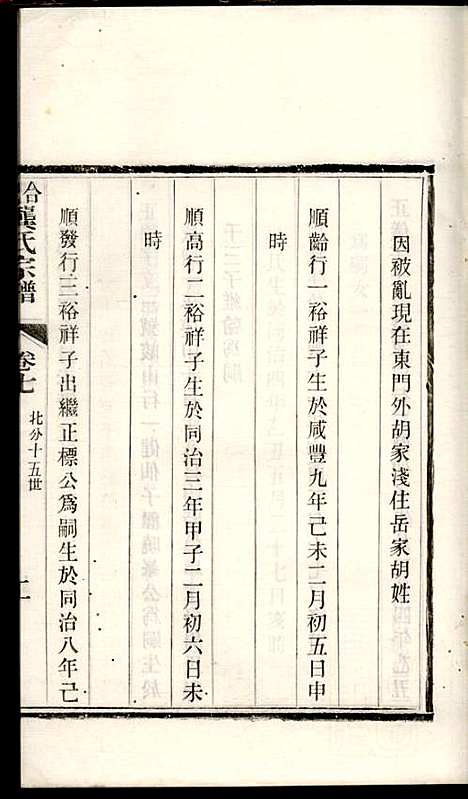 因被亂現在東門外胡家淺住岳家胡姓
順齡行一裕祥子生於咸豐九年己未二月初五日申
時
順高行二裕祥子生於同治三年甲子二月初六日未
時
順發行三裕祥子出繼正標公爲嗣生於同治八年己
合龔氏宗譜
卷七
北分十五世